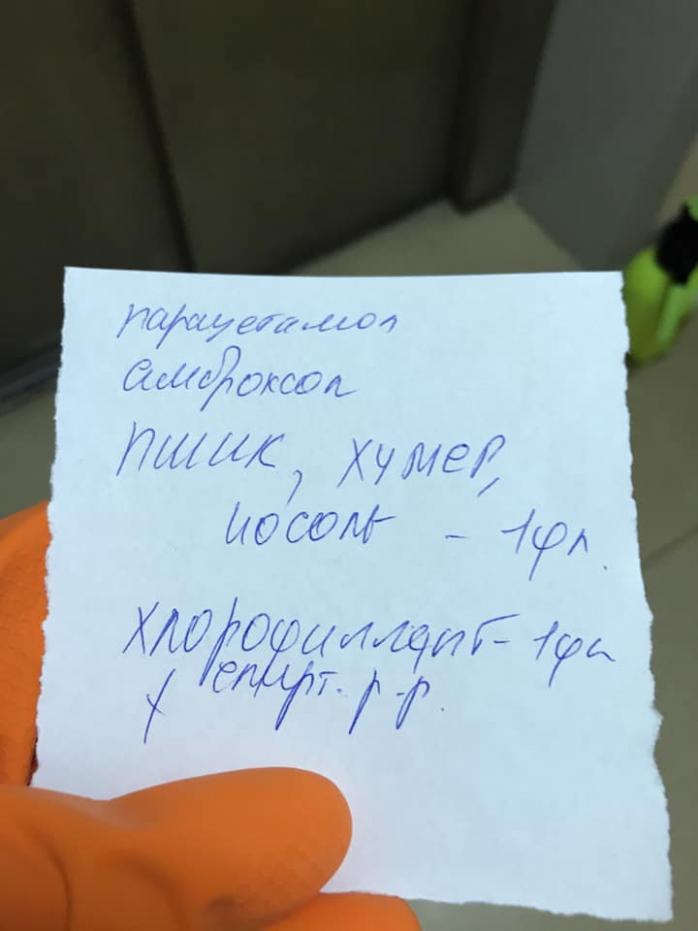 парацетамол
амброксол
пшик, хумер,
носоль - 1фл.
хлорофиллипт - 1фл
спирт. р-р.